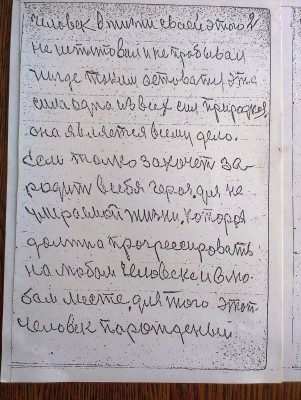 человек в жизни своей этого 2
не испытовал и не пробывал
нигде таким оставатся эта
сила одна из всех сил природная
она является всему дело.
Если только захочет за-
родить в себя героя, для не
умираемой жизни, которая
должна прогрессировать
на любом человеке и в лю-
бом месте, для того этот
человек парожденый